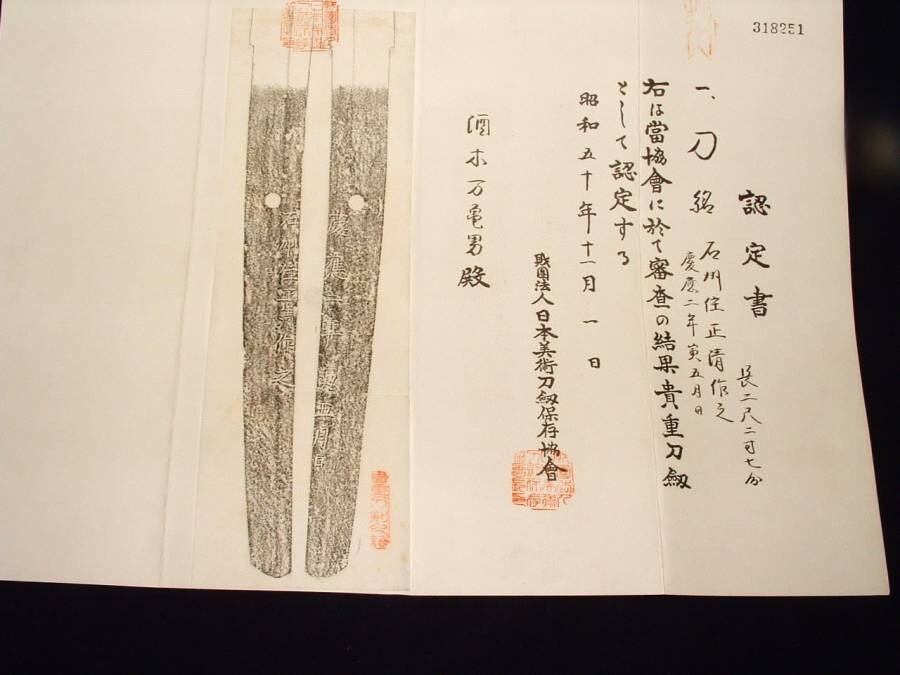 318251
認定書
長二尺二寸七分
一、刀 銘 石州住正清作之
慶應二年寅五月日
右は當協會に於て審査の結果貴重刀劔
として認定する
昭和五十年十一月一日
財團法人日本美術刀劔保存協會
酒木万亀男殿
慶應二年寅五月日
石州住正清作之